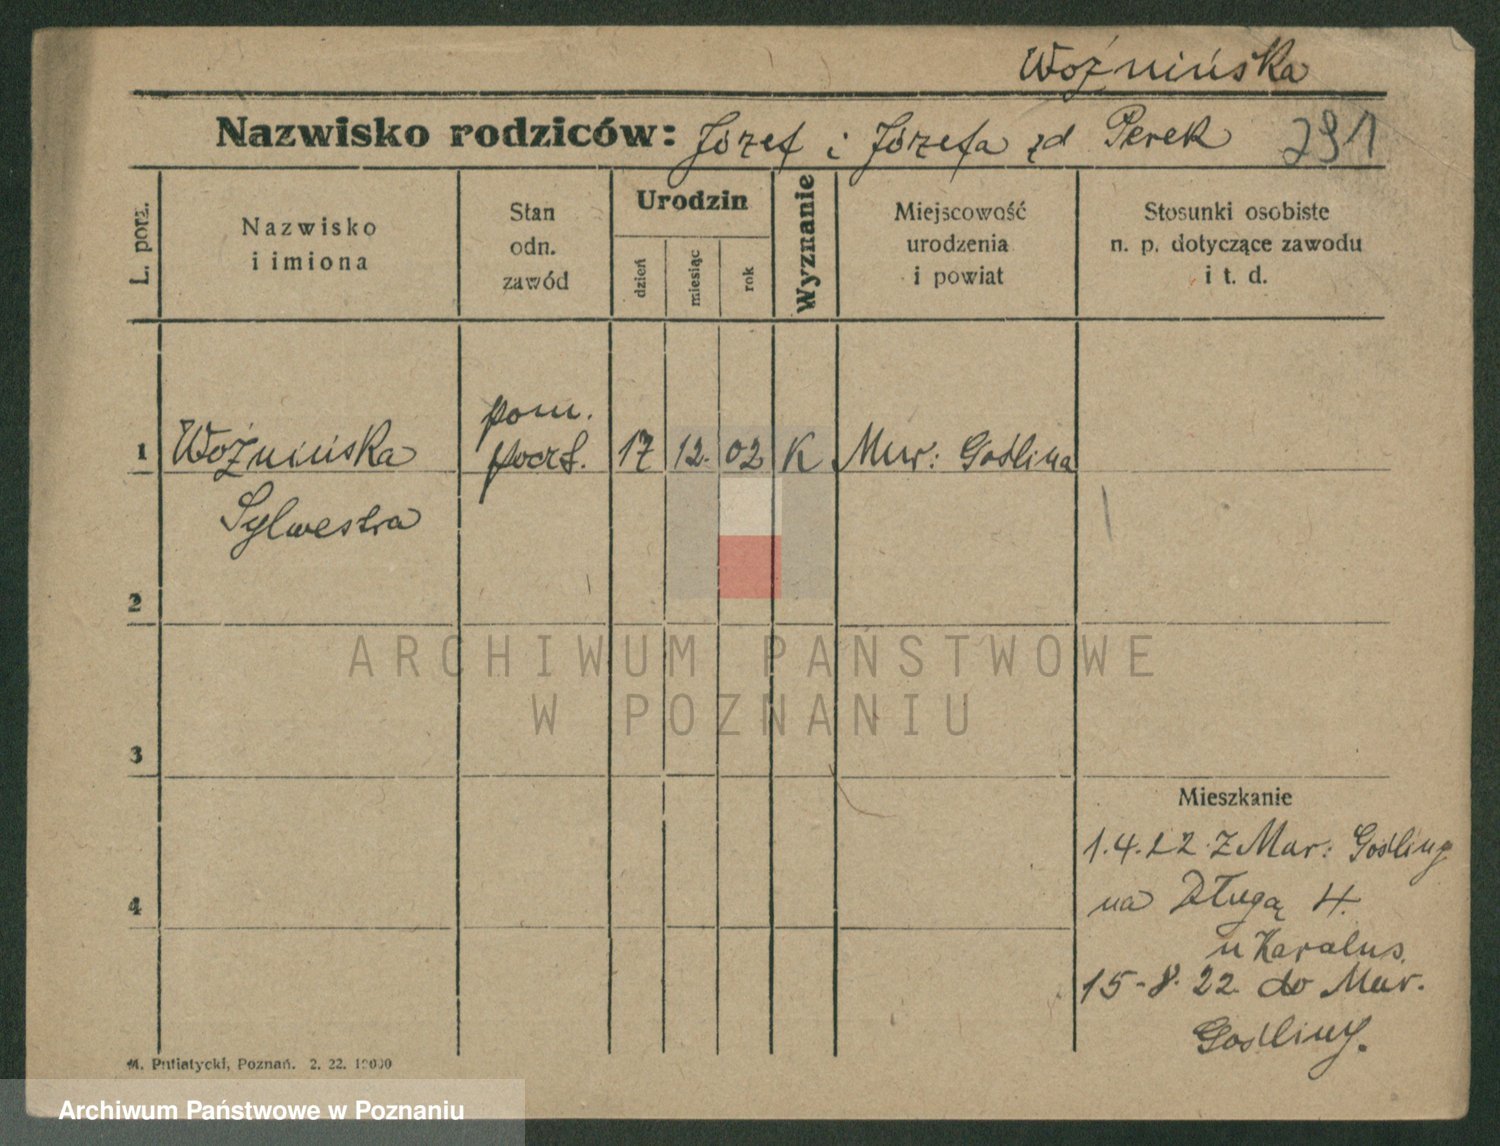 Woźnińska
Nazwisko rodziców: Józef i Józefa zd Perek 291
L. porz.
Nazwisko
i imiona
Stan
odn.
zawód
Urodzin
dzień
miesiąc
rok
Wyznanie
Miejscowość
urodzenia
i powiat
Stosunki osobiste
n. p. dotyczące zawodu
i t. d.
pom.
1 Woźnińska poczt. 17 12. 02 K Mur: Goślina
Sylwestra
2
ARCHIWUM PAŃSTWOWE
W POZNANIU
3
Mieszkanie
1.4.22 z Mur: Gośliny
4
na Długą 4.
u Karalus.
15-8.22 do Mur.
Gośliny.
M. Putiatycki, Poznań. 2. 22. 10000
Archiwum Państwowe w Poznaniu